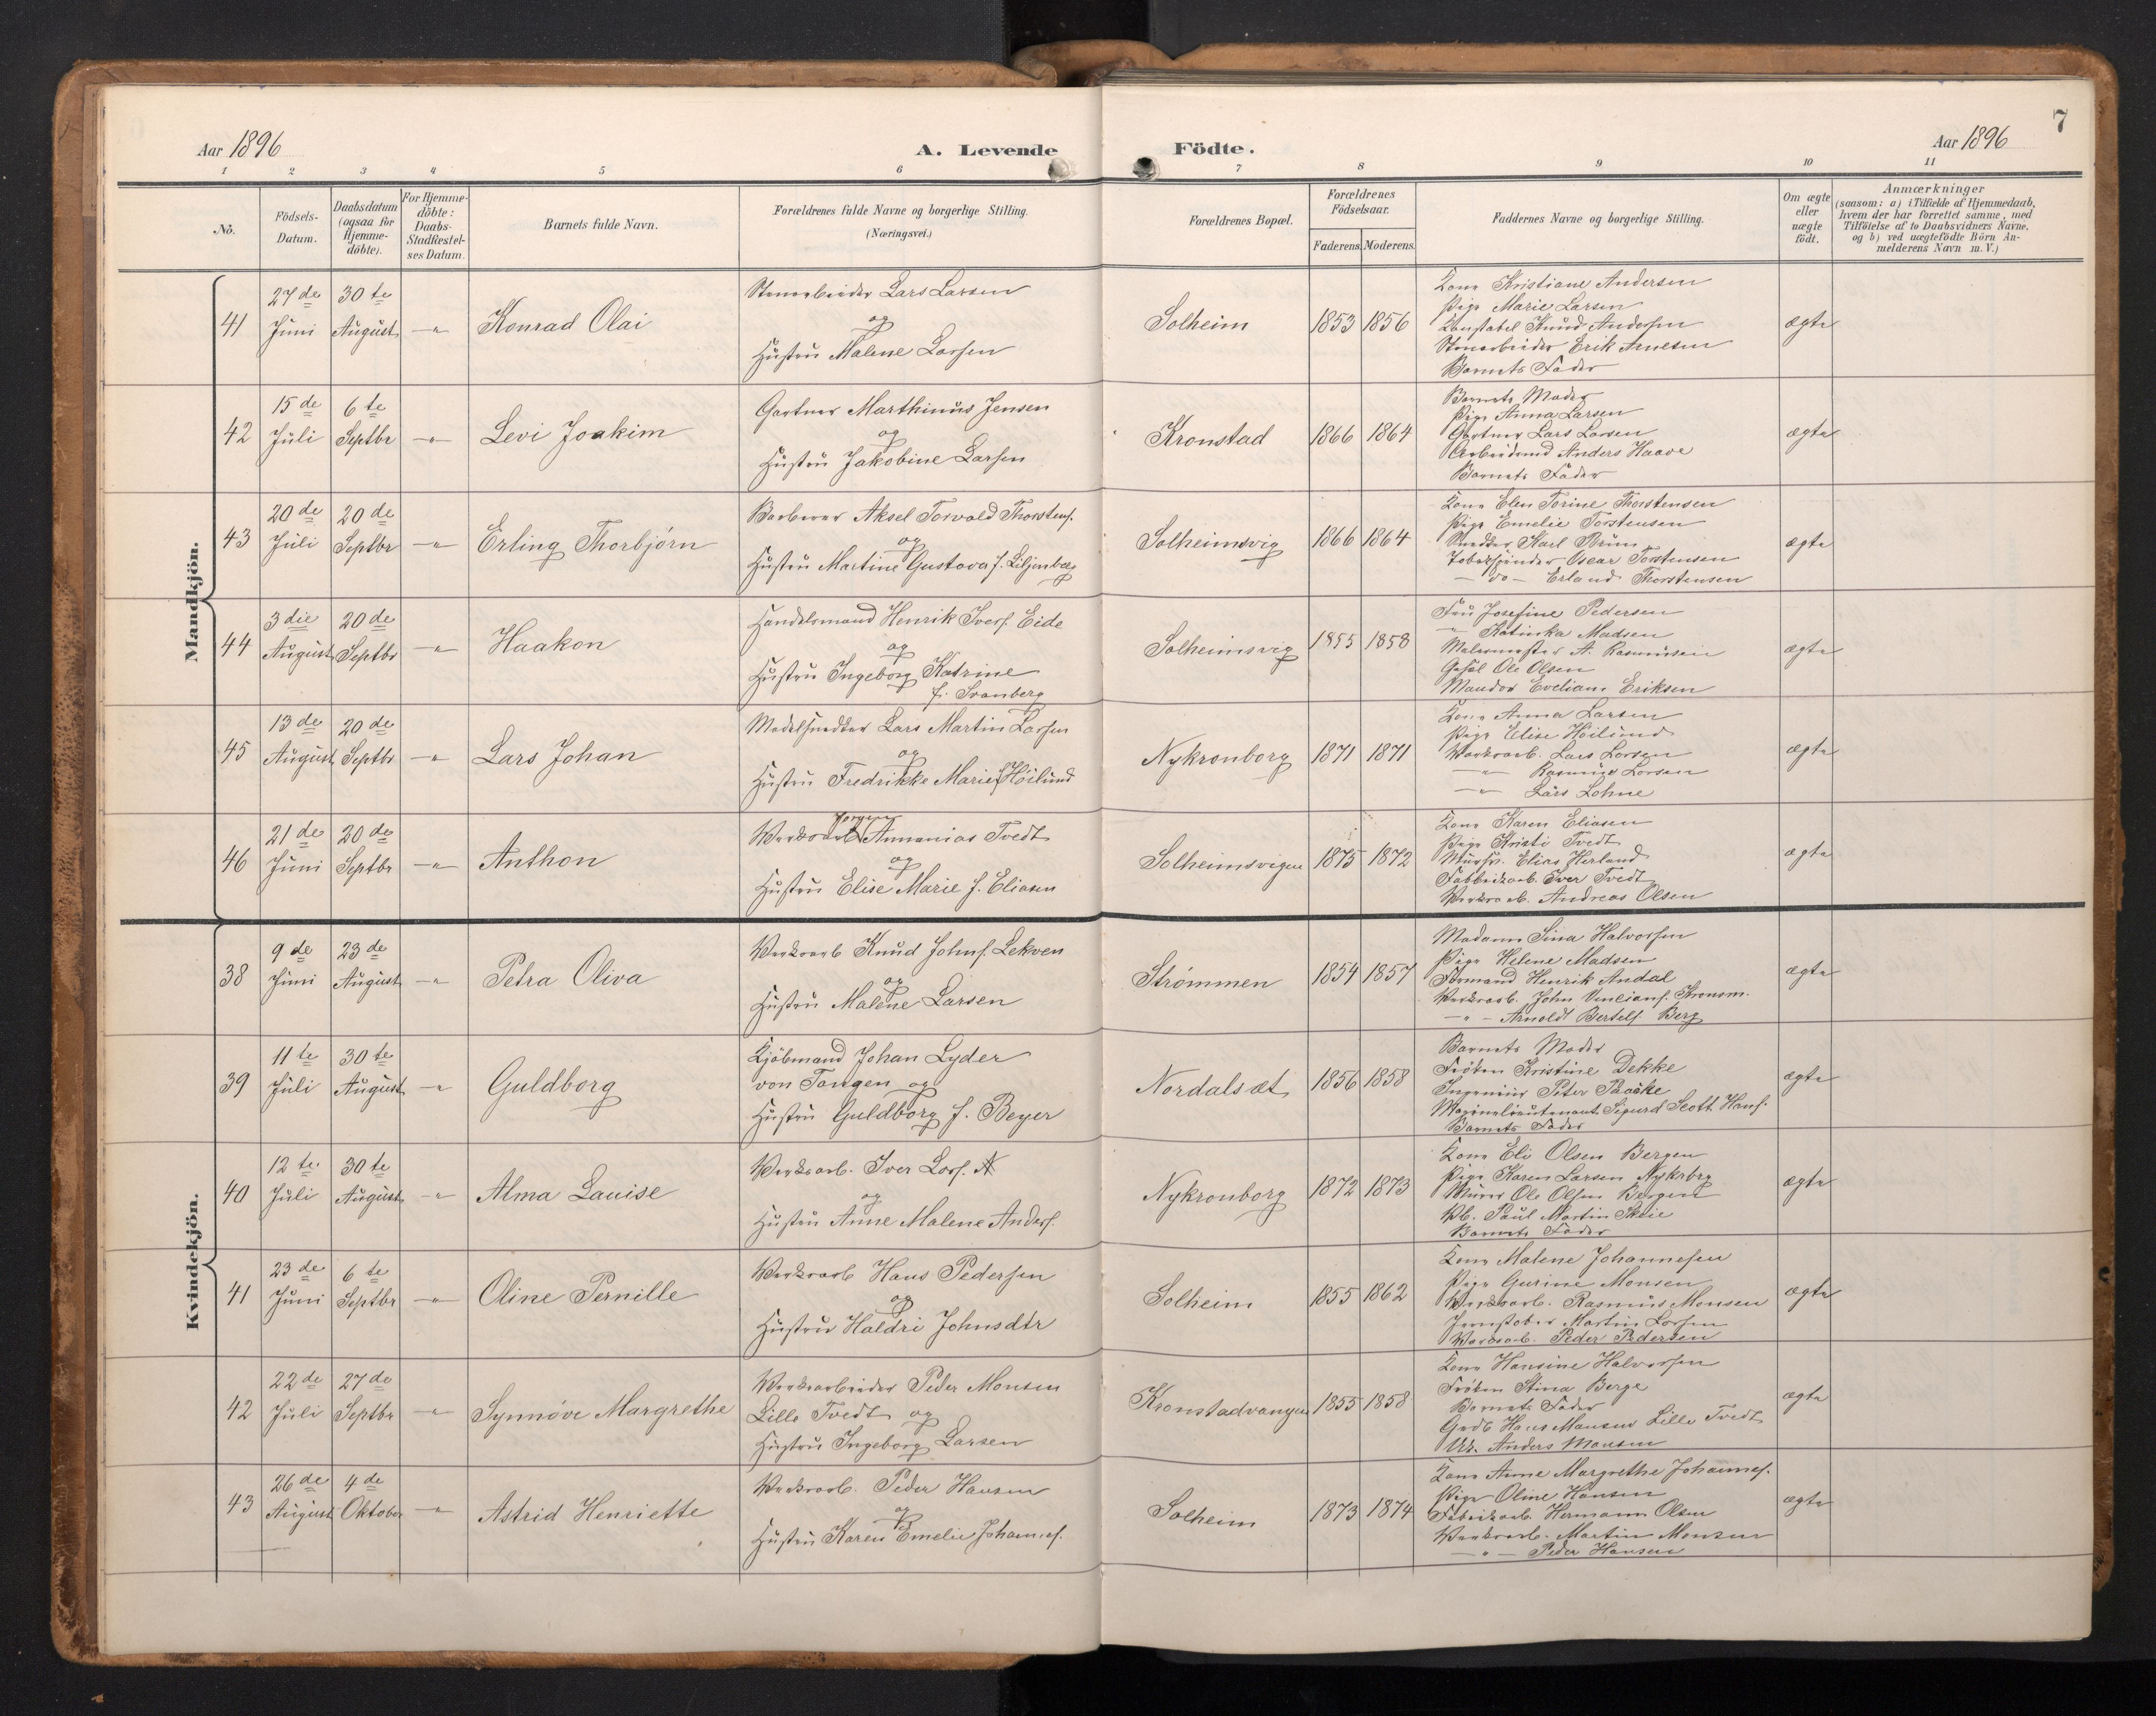 Aar 1896
A. Levende
Födte.
Aar 1896
7
1 2 3 4 5 6 7 8 9 10 11
No.
Födsels-
Datum.
Daabsdatum
(ogsaa for
Hjemme-
döbte).
For Hjemme-
döbte:
Daabs-
Stadfæstel-
ses Datum.
Barnets fulde Navn.
Forældrenes fulde Navne og borgerlige Stilling.
(Næringsvei.)
Forældrenes Bopæl.
Forældrenes
Födselsaar.
Faderens. Moderens.
Faddernes Navne og borgerlige Stilling.
Om ægte
eller
uægte
födt.
Anmærkninger
(saasom: a) i Tilfælde af Hjemmedaab,
hvem der har forrettet samme, med
Tilföielse af to Daabsvidners Navne,
og b) ved uægtefödte Börn An-
melderens Navn m. V.)
Mandkjön.
41
27de
Juni
30te
August
-"-
Konrad Olai
Stenarbeider Lars Larsen
og
Hustru Malene Larsen
Solheim
1853 1856
Kone Kristiane Andersen
Pige Marie Larsen
Konstabel Knud Andersen
Stenarbeider Erik Arnesen
Barnets Fader
ægte
42
15de
Juli
6te
Septbr
-"-
Levi Joakim
Gartner Marthinus Jensen
og
Hustru Jakobine Larsen
Kronstad
1866 1864
Barnets Moder
Pige Anna Larsen
Gartner Lars Larsen
Arbeidsmd Anders Haave
Barnets Fader
ægte
43
20de
Juli
20de
Septbr
-"-
Erling Thorbjørn
Barberer Aksel Torvald Thorstens.
og
Hustru Martine Gustava f. Liljenberg
Solheimsvig
1866 1864
Kone Elen Torine Thorstensen
Pige Emelie Torstensen
Snedker Karl Bruun
Oscar Torstensen
- do - Erland Thorstensen
ægte
44
3die
August
20de
Septbr
-"-
Haakon
Handelsmand Henrik Ivers. Eide
og
Hustru Ingeborg Katrine
f. Svanberg
Solheimsvig
1855 1858
Fru Josefine Pedersen
" Katinka Madsen
Malermester A. Rasmussen
Ole Olsen
Eriksen
ægte
45
13de
August
20de
Septbr
-"-
Lars Johan
Modelsnedker Lars Martin Larsen
og
Hustru Fredrikke Marie f. Höilund
Nykronborg
1871 1871
Kone Anna Larsen
Pige Elise Höilund
Værksarb. Lars Larsen
-"- Rasmus Larsen
-"- Lars Lohne
ægte
46
21de
Juni
20de
Septbr
-"-
Anthon
Jørgen
Værksarb. Annanias Tvedt
og
Hustru Elise Marie f. Eliasen
Solheimsvigen
1875 1872
Kone Karen Eliasen
Pige Kristi Tvedt
Elias Herland
Fabrikarb. Iver Tvedt
Værksarb. Andreas Olsen
ægte
Kvindekjön.
38
9de
Juni
23de
August
-"-
Petra Oliva
Værksarb Knud Johns. Lekven
og
Hustru Malene Larsen
Strømmen
1854 1857
Madame Sina Halvorsen
Pige Helene Madsen
Formand Henrik Andal
Værksarb. John
-"- Arnoldt Bertels. Berg
ægte
39
11te
Juli
30te
August
-"-
Guldborg
Kjöbmand Johan Lyder
von Tangen og
Hustru Guldborg f. Beyer
Nordalsæt
1856 1858
Barnets Moder
Fröken Kristine Dekke
Ingeniör Peter
Marinelieutenant Sigurd Scott Hans.
Barnets Fader
ægte
40
12te
Juli
30te
August
-"-
Alma Lauise
Værksarb. Iver Lars.
og
Hustru Anne Malene Anders.
Nykronborg
1872 1873
Kone Eli Olsen Bergen
Pige Karen Larsen Nykrbrg
Murer Ole Olsen Bergen
Vb. Paul Martin Skeie
Barnets Fader
ægte
41
23de
Juni
6te
Septbr
-"-
Oline Pernille
Værksarb Hans Pedersen
og
Hustru Haldri Johnsdtr
Solheim
1855 1862
Kone Malene Johannesen
Pige Gurine Monsen
Værksarb. Rasmus Monsen
Jernstöber Martin Larsen
Værksarb. Peder Pedersen
ægte
42
22de
Juli
27de
Septbr
-"-
Synnöve Margrethe
Værksarbeider Peder Monsen
Lille Tvedt og
Hustru Ingeborg Larsen
Kronstadvangen
1855 1858
Kone Hansine Halvorsen
Fröken Stina Berge
Barnets Fader
Grdb Hans Monsen Lille Tvedt
Anders Monsen
ægte
43
26de
August
4de
Oktober
-"-
Astrid Henriette
Værksarb. Peder Hansen
og
Hustru Karen Emelie Johannes.
Solheim
1873 1874
Kone Anne Margrethe Johannes.
Pige Oline Hansen
Fabrikarb. Hermann Olsen
Værksarb. Martin Monsen
-"- Peder Hansen
ægte